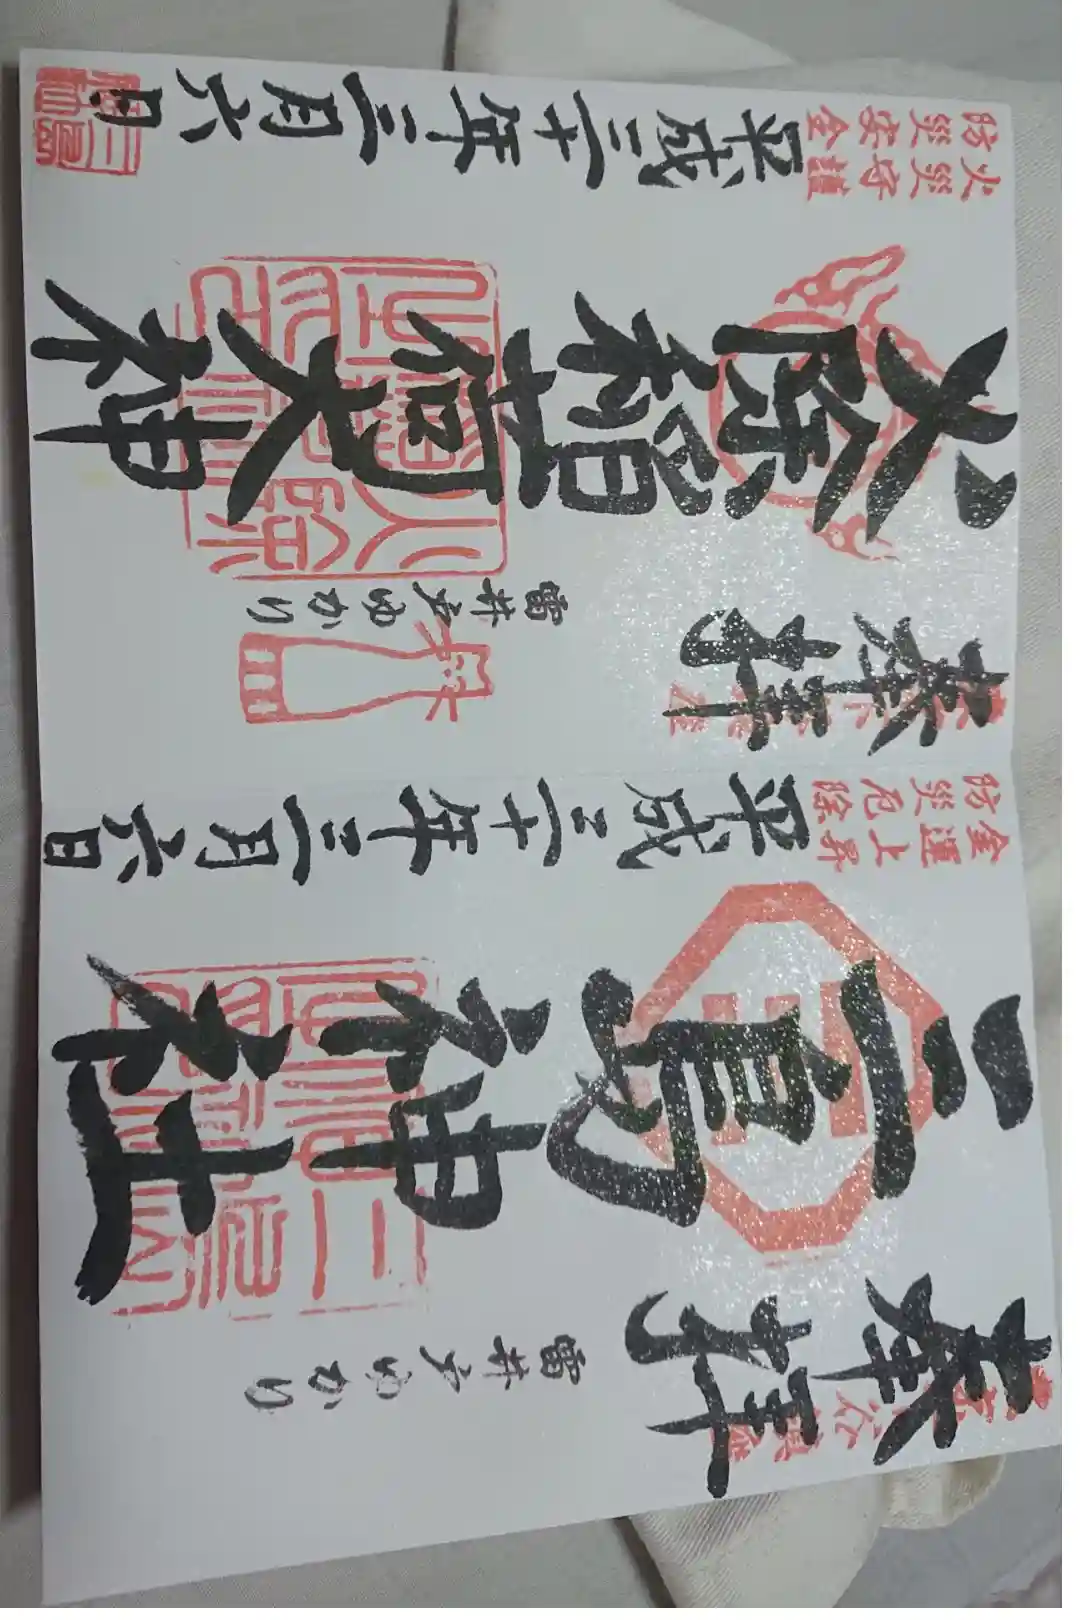 奉拝
雷井戸ゆかり
三島神社
金運上昇
防災厄除
平成三十年三月六日
奉拝
雷井戸ゆかり
火除稲荷大神
火災守護
防災安全
平成三十年三月六日